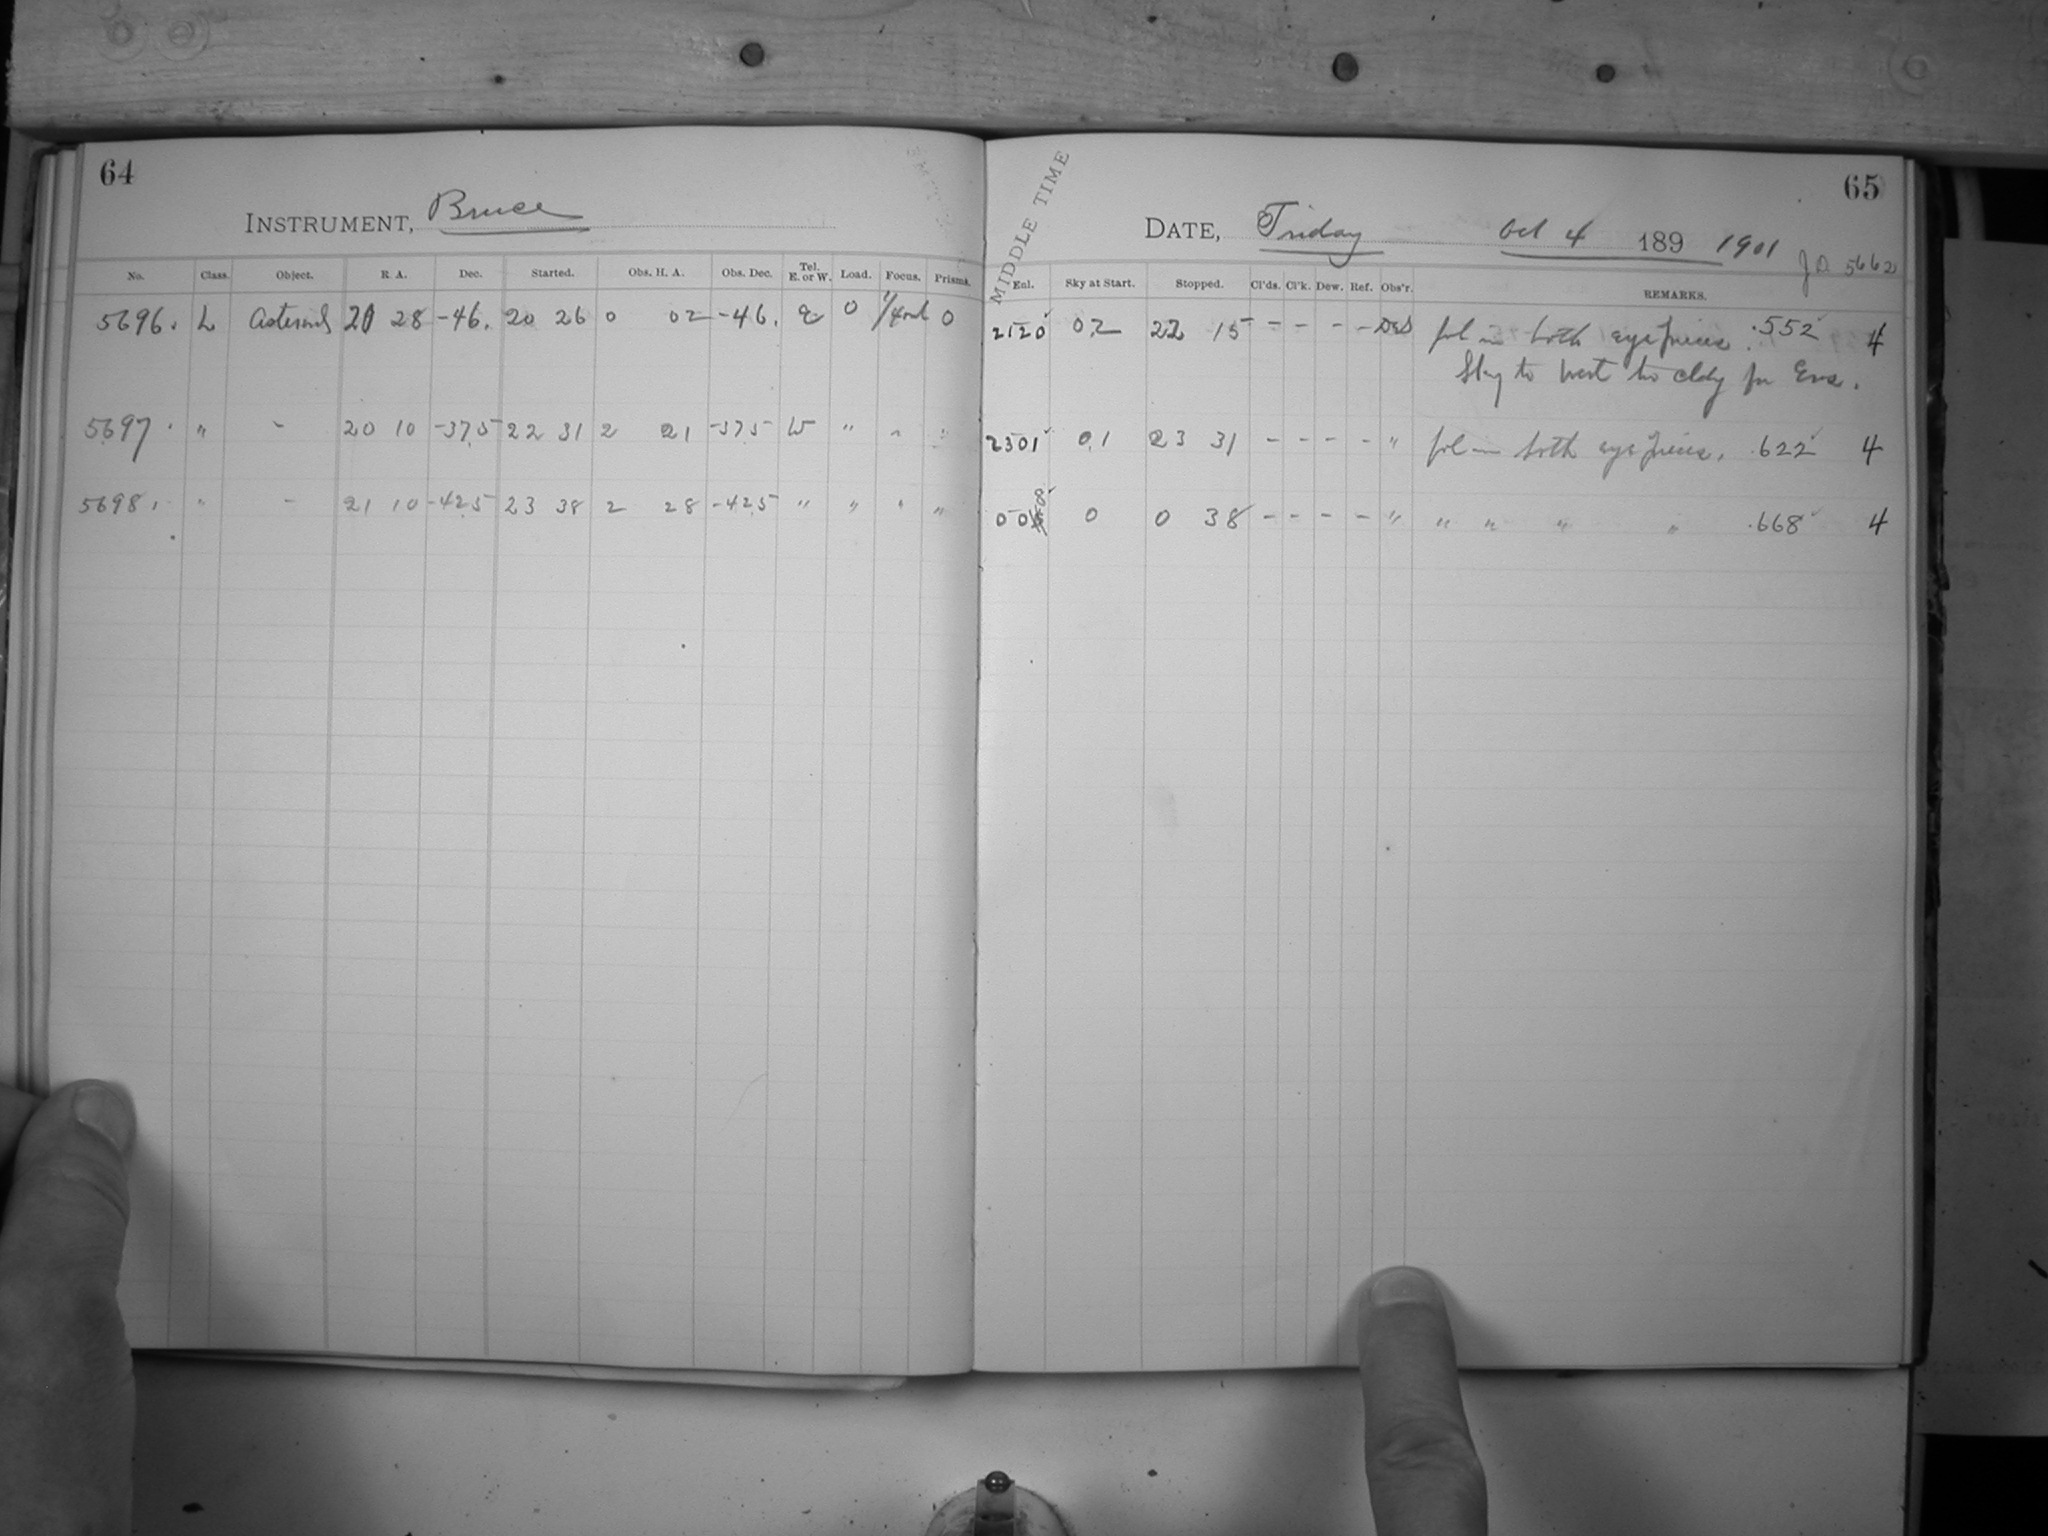 64
INSTRUMENT, Bruce
No. Class. Object. R. A. Dec. Started. Obs. H. A. Obs. Dec. Tel. E. or W. Load. Focus. Prisms.
5696. L Asteroids 20 28 -46. 20 26 0 02 -46. E 0 0
5697 " " 20 10 -37.5 22 31 2 21 -37.5 W " " "
5698. " " 21 10 -42.5 23 38 2 28 -42.5 " " " "
65
MIDDLE TIME
DATE, Friday Oct 4 189 1901
J.D. 5662
Enl. Sky at Start. Stopped. Cl'ds. Cl'k. Dew. Ref. Obs'r. REMARKS.
21 20 02 22 15 - - - - fol in both eyepieces .552 4
Sky to West too cldy for Eros.
23 01 01 23 31 - - - - " fol in both eyepieces. .622 4
0 08 0 0 38 - - - - " " " " " .668 4